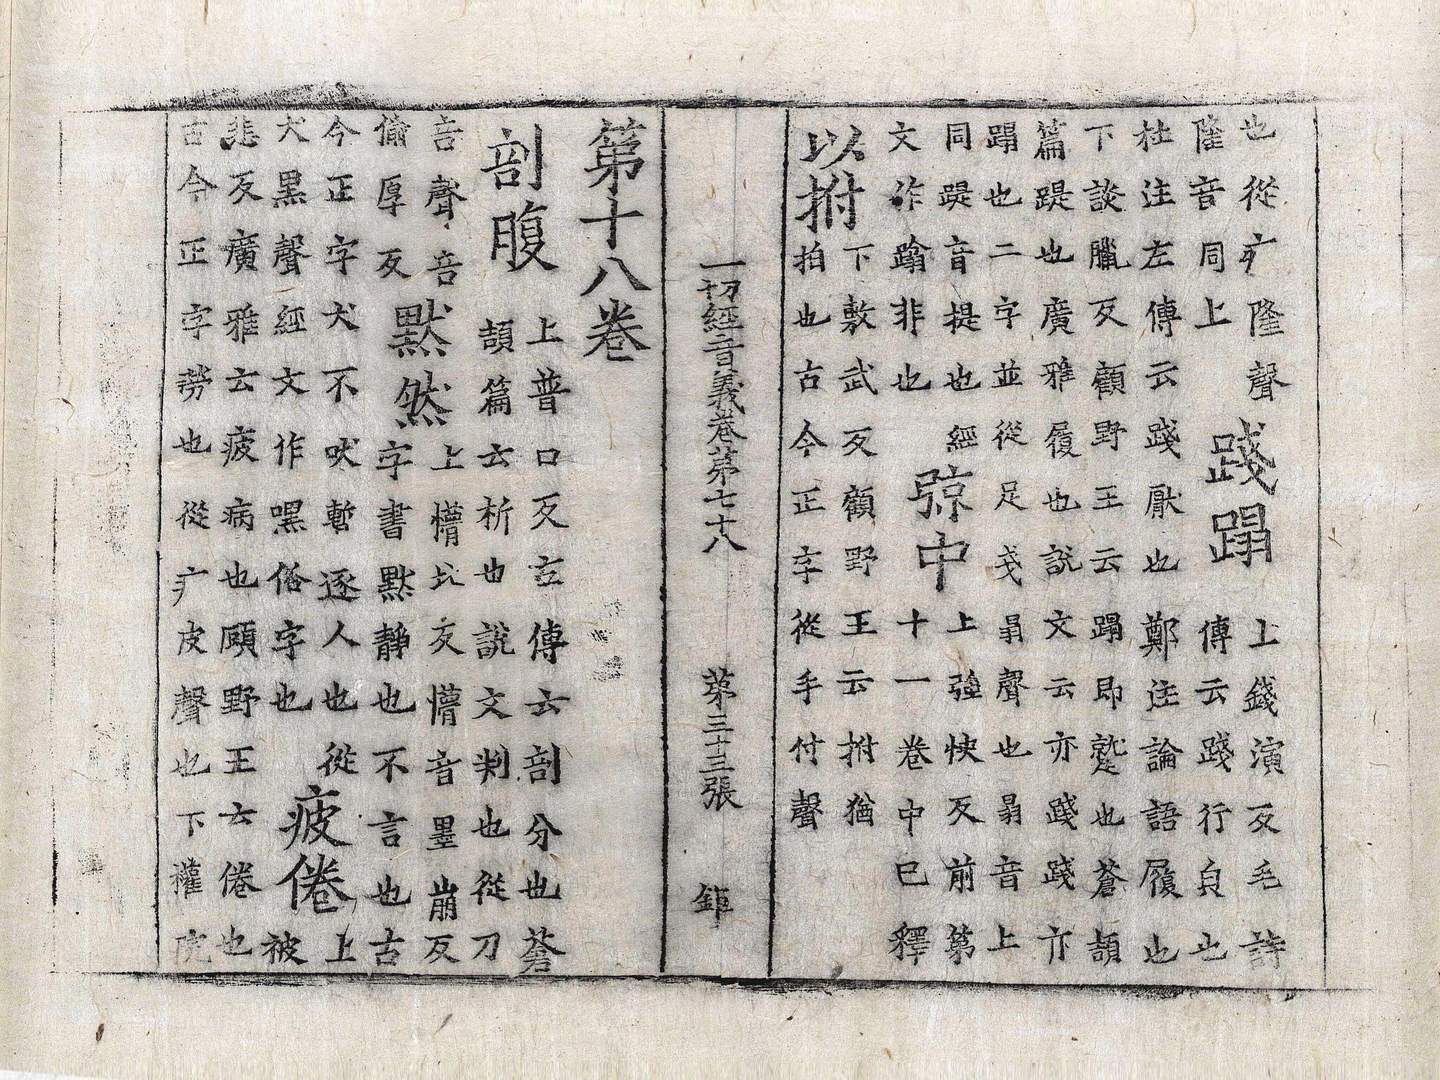 也從疒隆聲
隆音同上
踐蹋
上錢演反毛詩
傳云踐行皃也
杜注左傳云踐厭也鄭注論語履也
下談臘反顧野王云蹋即蹵也蒼頡
篇踶也廣雅履也說文云亦踐踐亦
蹋也二字並從足戔𦐇聲也𦐇音上
同踶音提也經
文作蹹非也
弶中
上強怏反前第
十一卷中已釋
以拊
下敷武反顧野王云拊猶
拍也古今正字從手付聲
一切經音義卷第七十八 第三十三張 鉅
第十八卷
剖腹
上普口反玄傳云剖分也蒼
頡篇云析也說文判也從刀
咅聲咅音
偷厚反
默然
上懵北反懵音墨崩反
字書默靜也不言也古
今正字犬不吠暫逐人也從
犬黑聲經文作嘿俗字也
疲倦
上
被
悲反廣雅云疲病也顧野王云倦也
古今正字勞也從疒皮聲也下權院